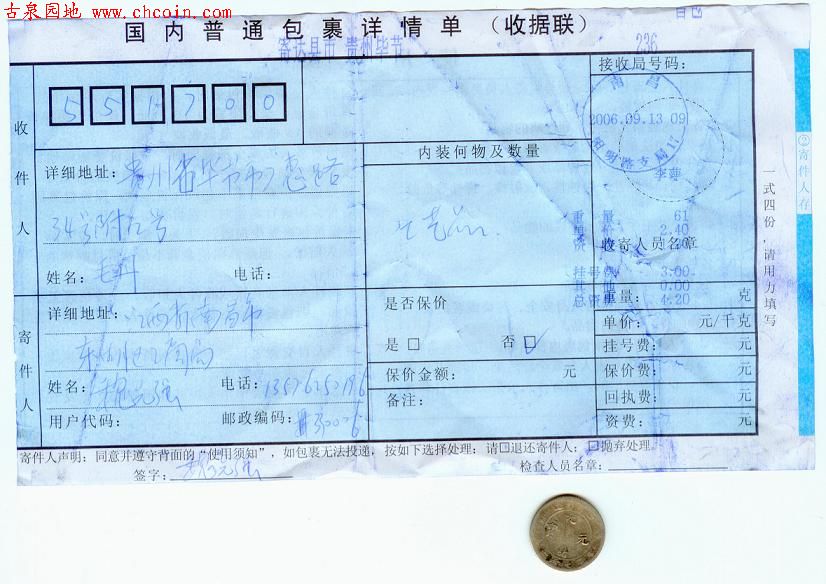 古泉园地 www.chcoin.com
国内普通包裹详情单(收据联)
寄达县市 贵州毕节
236
接收局号码:
551700
南昌
2006.09.13 09
阳明路支局
李萍
收件人
详细地址: 贵州省毕节市
34号附2号
姓名: 毛
电话:
内装何物及数量
工艺品
重 量 61
单 价 2.40
收寄人员名章
挂号费 3.00
其 他 0.00
总资费 4.20
寄件人
详细地址: 江西省南昌市
东湖区
姓名: 魏元强
电话: 13576252196
用户代码:
邮政编码: 330006
是否保价
是 □ 否 □
保价金额: 元
备注:
重量: 克
单价: 元/千克
挂号费: 元
保价费: 元
回执费: 元
资费: 元
寄件人声明:同意并遵守背面的“使用须知”,如包裹无法投递,按如下选择处理:请□退还寄件人;□抛弃处理。
签字: 魏元强
检查人员名章:
②寄件人存
一式四份,请用力填写
元